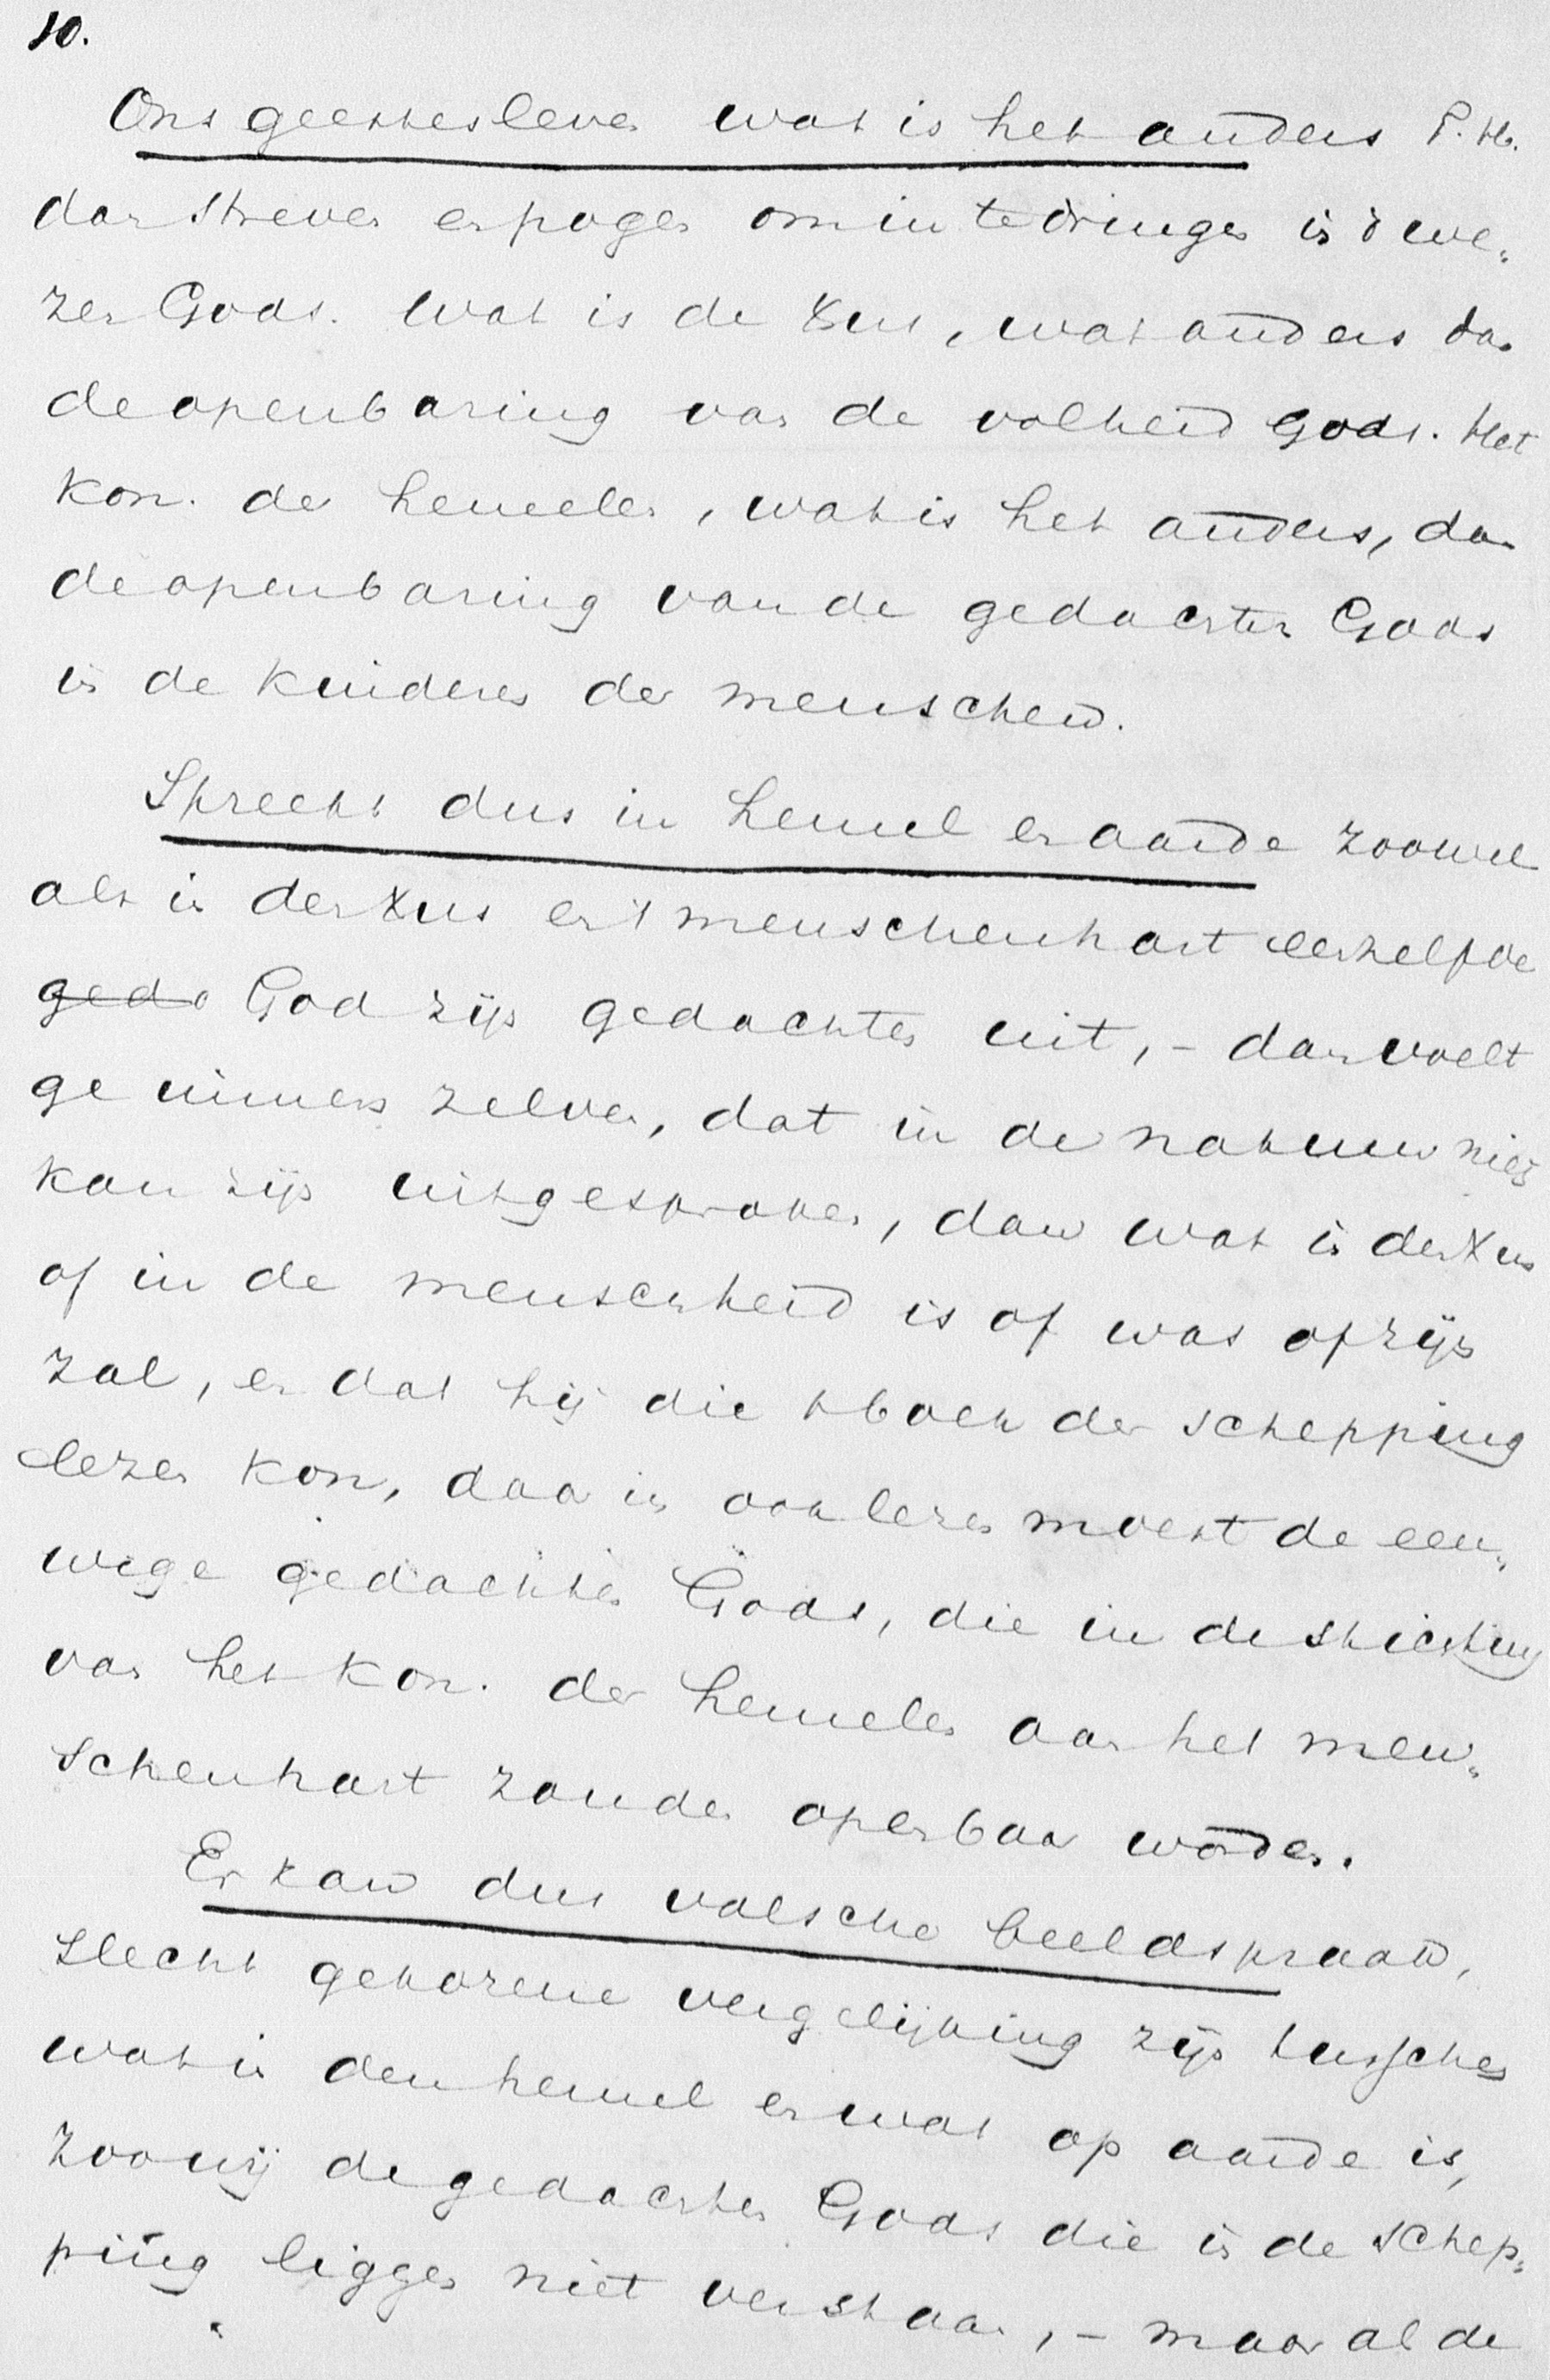 10.
Ons geestesleven wat is het anders T. H.
dan streven en pogen om in te dringen in 't we-
zen Gods. Wat is de Xus, wat anders dan
de openbaring van de volheid Gods. Het
kon. der hemelen, wat is het anders, dan
de openbaring van de gedachten Gods
in de kinderen der menschen.
Spreekt dus in hemel en aarde zoowel
als in den Xus en 't menschenhart eenzelfde
geda God zijn gedachten uit, - dan voelt
ge immers zelven, dat in de natuur niets
kan zijn uitgesproken, dan wat in den Xus
of in de menschheid is of was of zijn
zal, en dat hij die 't boek der schepping
lezen kon, daarin ook lezen moest de eeu-
wige gedachten Gods, die in de stichting
van het kon. der hemelen aan het men-
schenhart zouden openbaar worden.
Er kan dus valsche beeldspraak,
slecht gekozene vergelijking zijn tusschen
wat in den hemel en wat op aarde is,
zoo wij de gedachten Gods die in de schep-
ping liggen niet verstaan, - maar al de